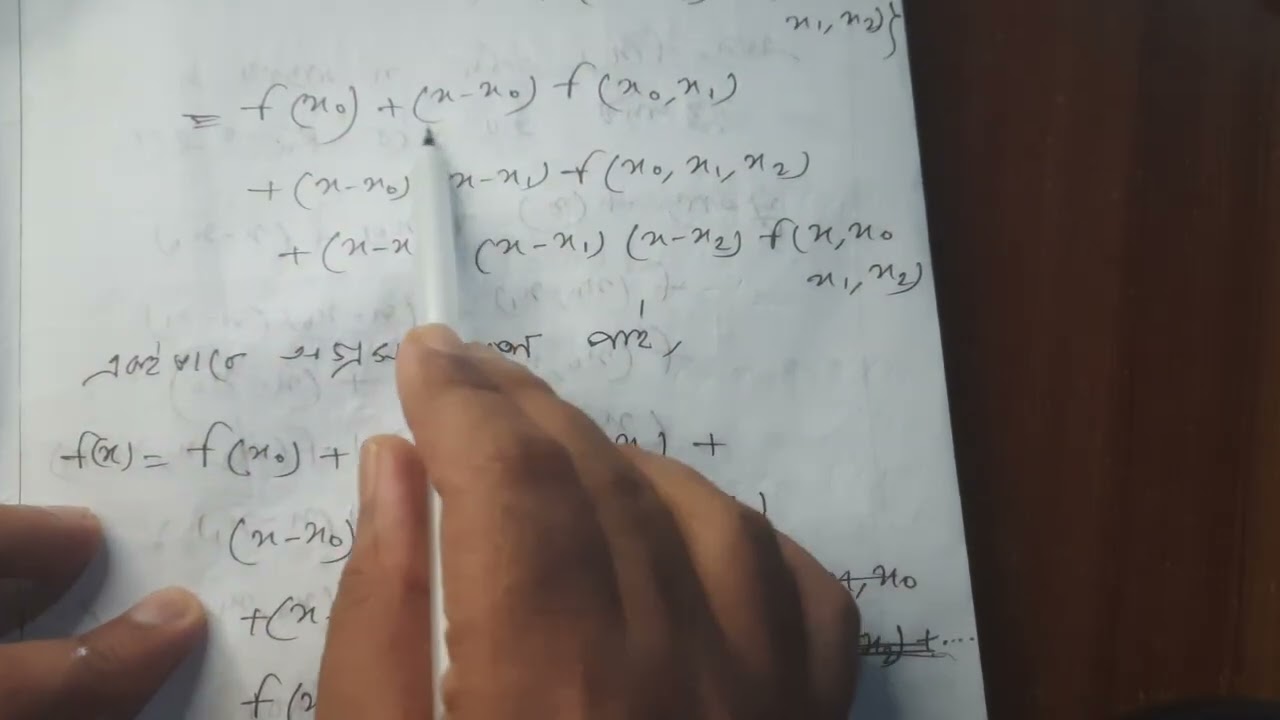 x₁, x₂)}
= f(x₀) + (x-x₀) f(x₀, x₁)
+ (x-x₀) x-x₁) f(x₀, x₁, x₂)
+ (x-x (x-x₁) (x-x₂) f(x, x₀
x₁, x₂)
এইভাবে পাই,
f(x) = f(x₀) + x₁) +
(x-x₀)
+(x- x, x₀
x₂) + ....
f(x